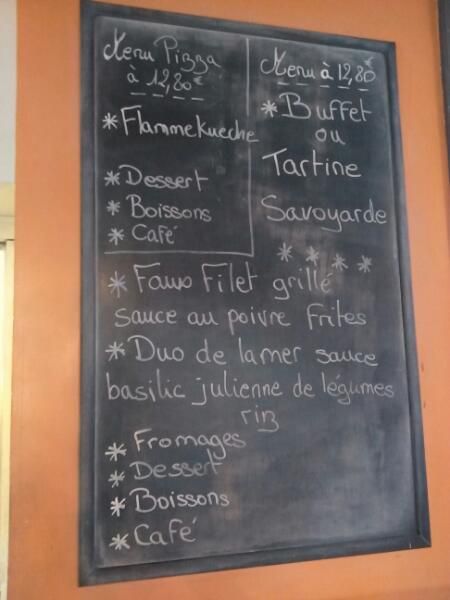 Menu Pizza
à 12,80€
* Flammekueche
* Dessert
* Boissons
* Café
Menu à 12,80€
* Buffet
ou
Tartine
Savoyarde
* * * *
* Faux Filet grillé
sauce au poivre frites
* Duo de la mer sauce
basilic julienne de légumes
riz
* Fromages
* Dessert
* Boissons
* Café